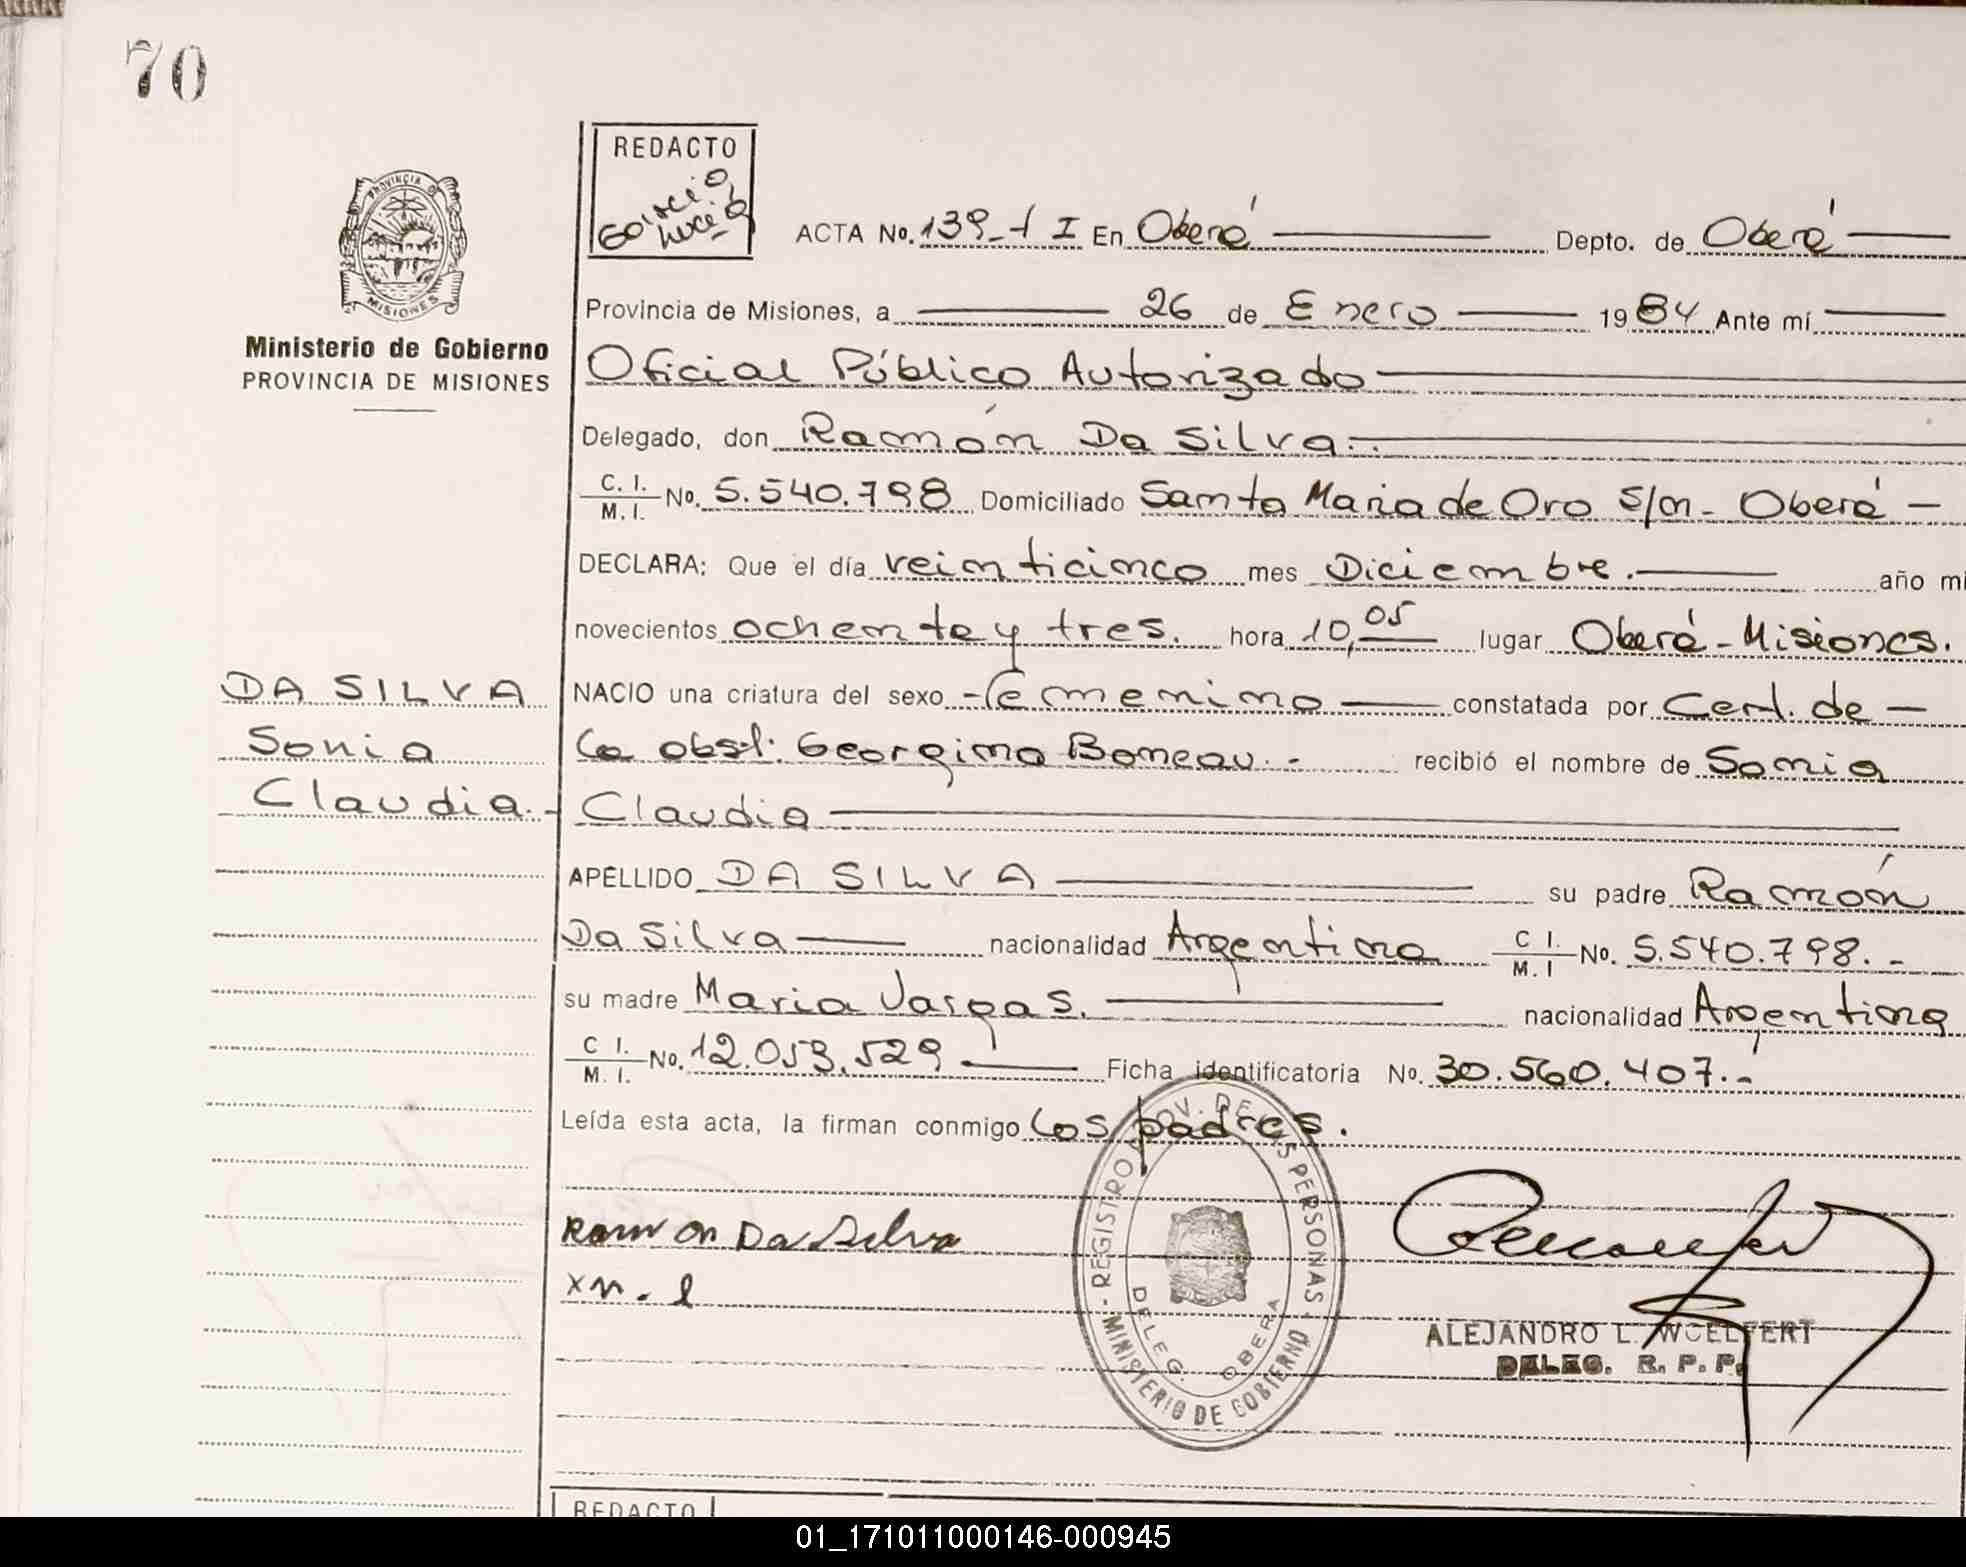 70
PROVINCIA D
MISIONES
Ministerio de Gobierno
PROVINCIA DE MISIONES
REDACTO
ACTA No. 139-t I En Oberá Depto. de Oberá
Provincia de Misiones, a 26 de Enero 1984 Ante mí
Oficial Público Autorizado
Delegado, don Ramón Da Silva.
C. I. / M. I. No. 5.540.798 Domiciliado Santa Maria de Oro S/n - Oberá -
DECLARA: Que el día veinticinco mes Diciembre. año mi
novecientos ochenta y tres. hora 10,05 lugar Oberá - Misiones.
DA SILVA
Sonia
Claudia.-
NACIO una criatura del sexo -femenino constatada por Cert. de -
la obst. Georgina Boneau. - recibió el nombre de Sonia
Claudia
APELLIDO DA SILVA su padre Ramón
Da Silva nacionalidad Argentina C I. / M. I No. 5.540.798. -
su madre Maria Vargas. nacionalidad Argentina
C I. / M. I. No. 12.053.529 Ficha identificatoria No. 30.560.407.-
Leída esta acta, la firman conmigo los padres.
Ramon Da Silva
x m. l
REGISTRO PROV. DE LAS PERSONAS
- MINISTERIO DE GOBIERNO -
DELEG. OBERA
ALEJANDRO L. WOELFERT
DELEG. R. P. P.
REDACTO
01_171011000146-000945